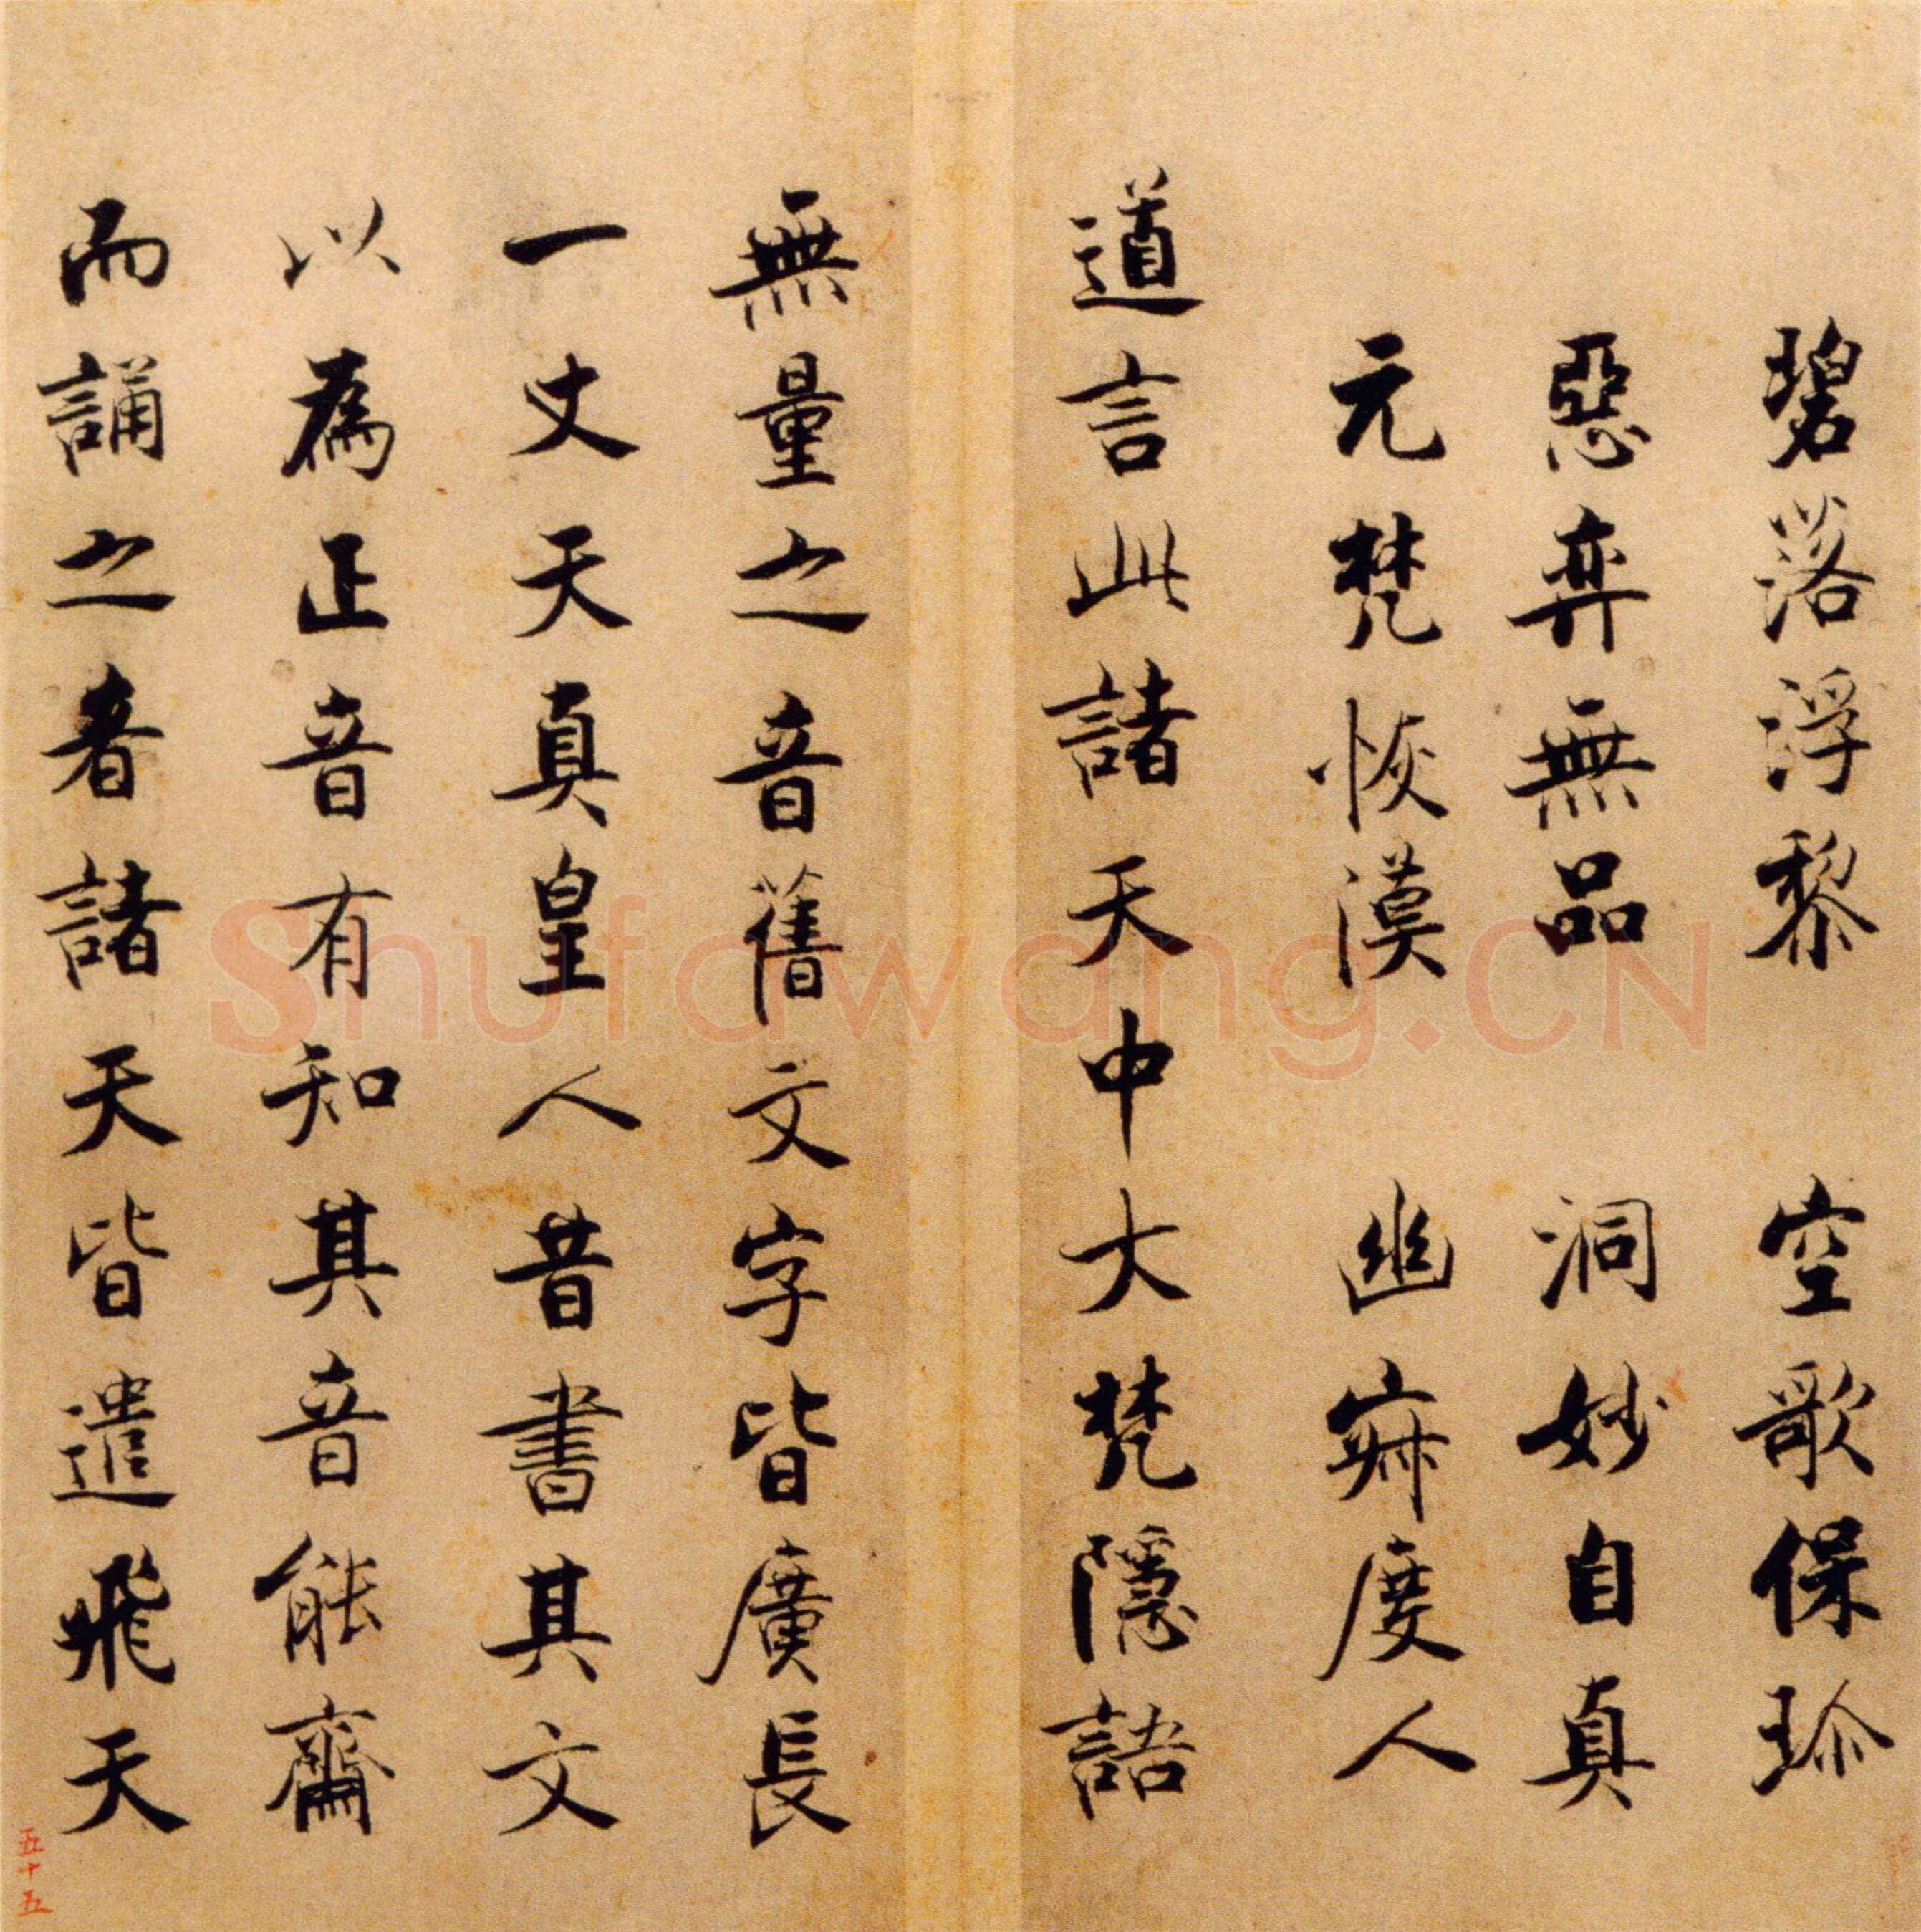 碧落浮黎　空歌保珎
惡弈無品　洞妙自真
元梵恢漠　幽寂度人
道言此諸天中大梵隱語
無量之音舊文字皆廣長
一丈天真皇人昔書其文
以為正音有知其音能齋
而誦之者諸天皆遣飛天
五十五
Shufawang.CN